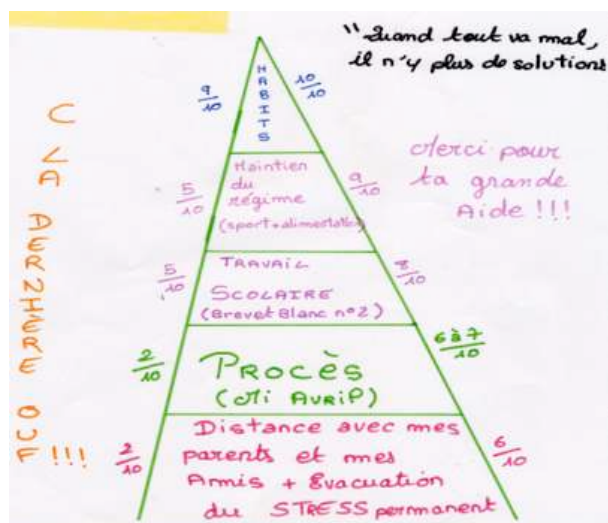 "Quand tout va mal,
il n'y plus de solutions
C LA DERNIERE OUF !!!
HABITS
9/10
10/10
Merci pour
ta grande
Aide !!!
Maintien
du
régime
(sport+alimentation)
5/10
9/10
TRAVAIL
SCOLAIRE
(Brevet Blanc n°2)
5/10
8/10
PROCÈS
(Mi AVRIL)
2/10
6 à 7/10
Distance avec mes
parents et mes
Armis + Evacuation
du STRESS permanent
2/10
6/10